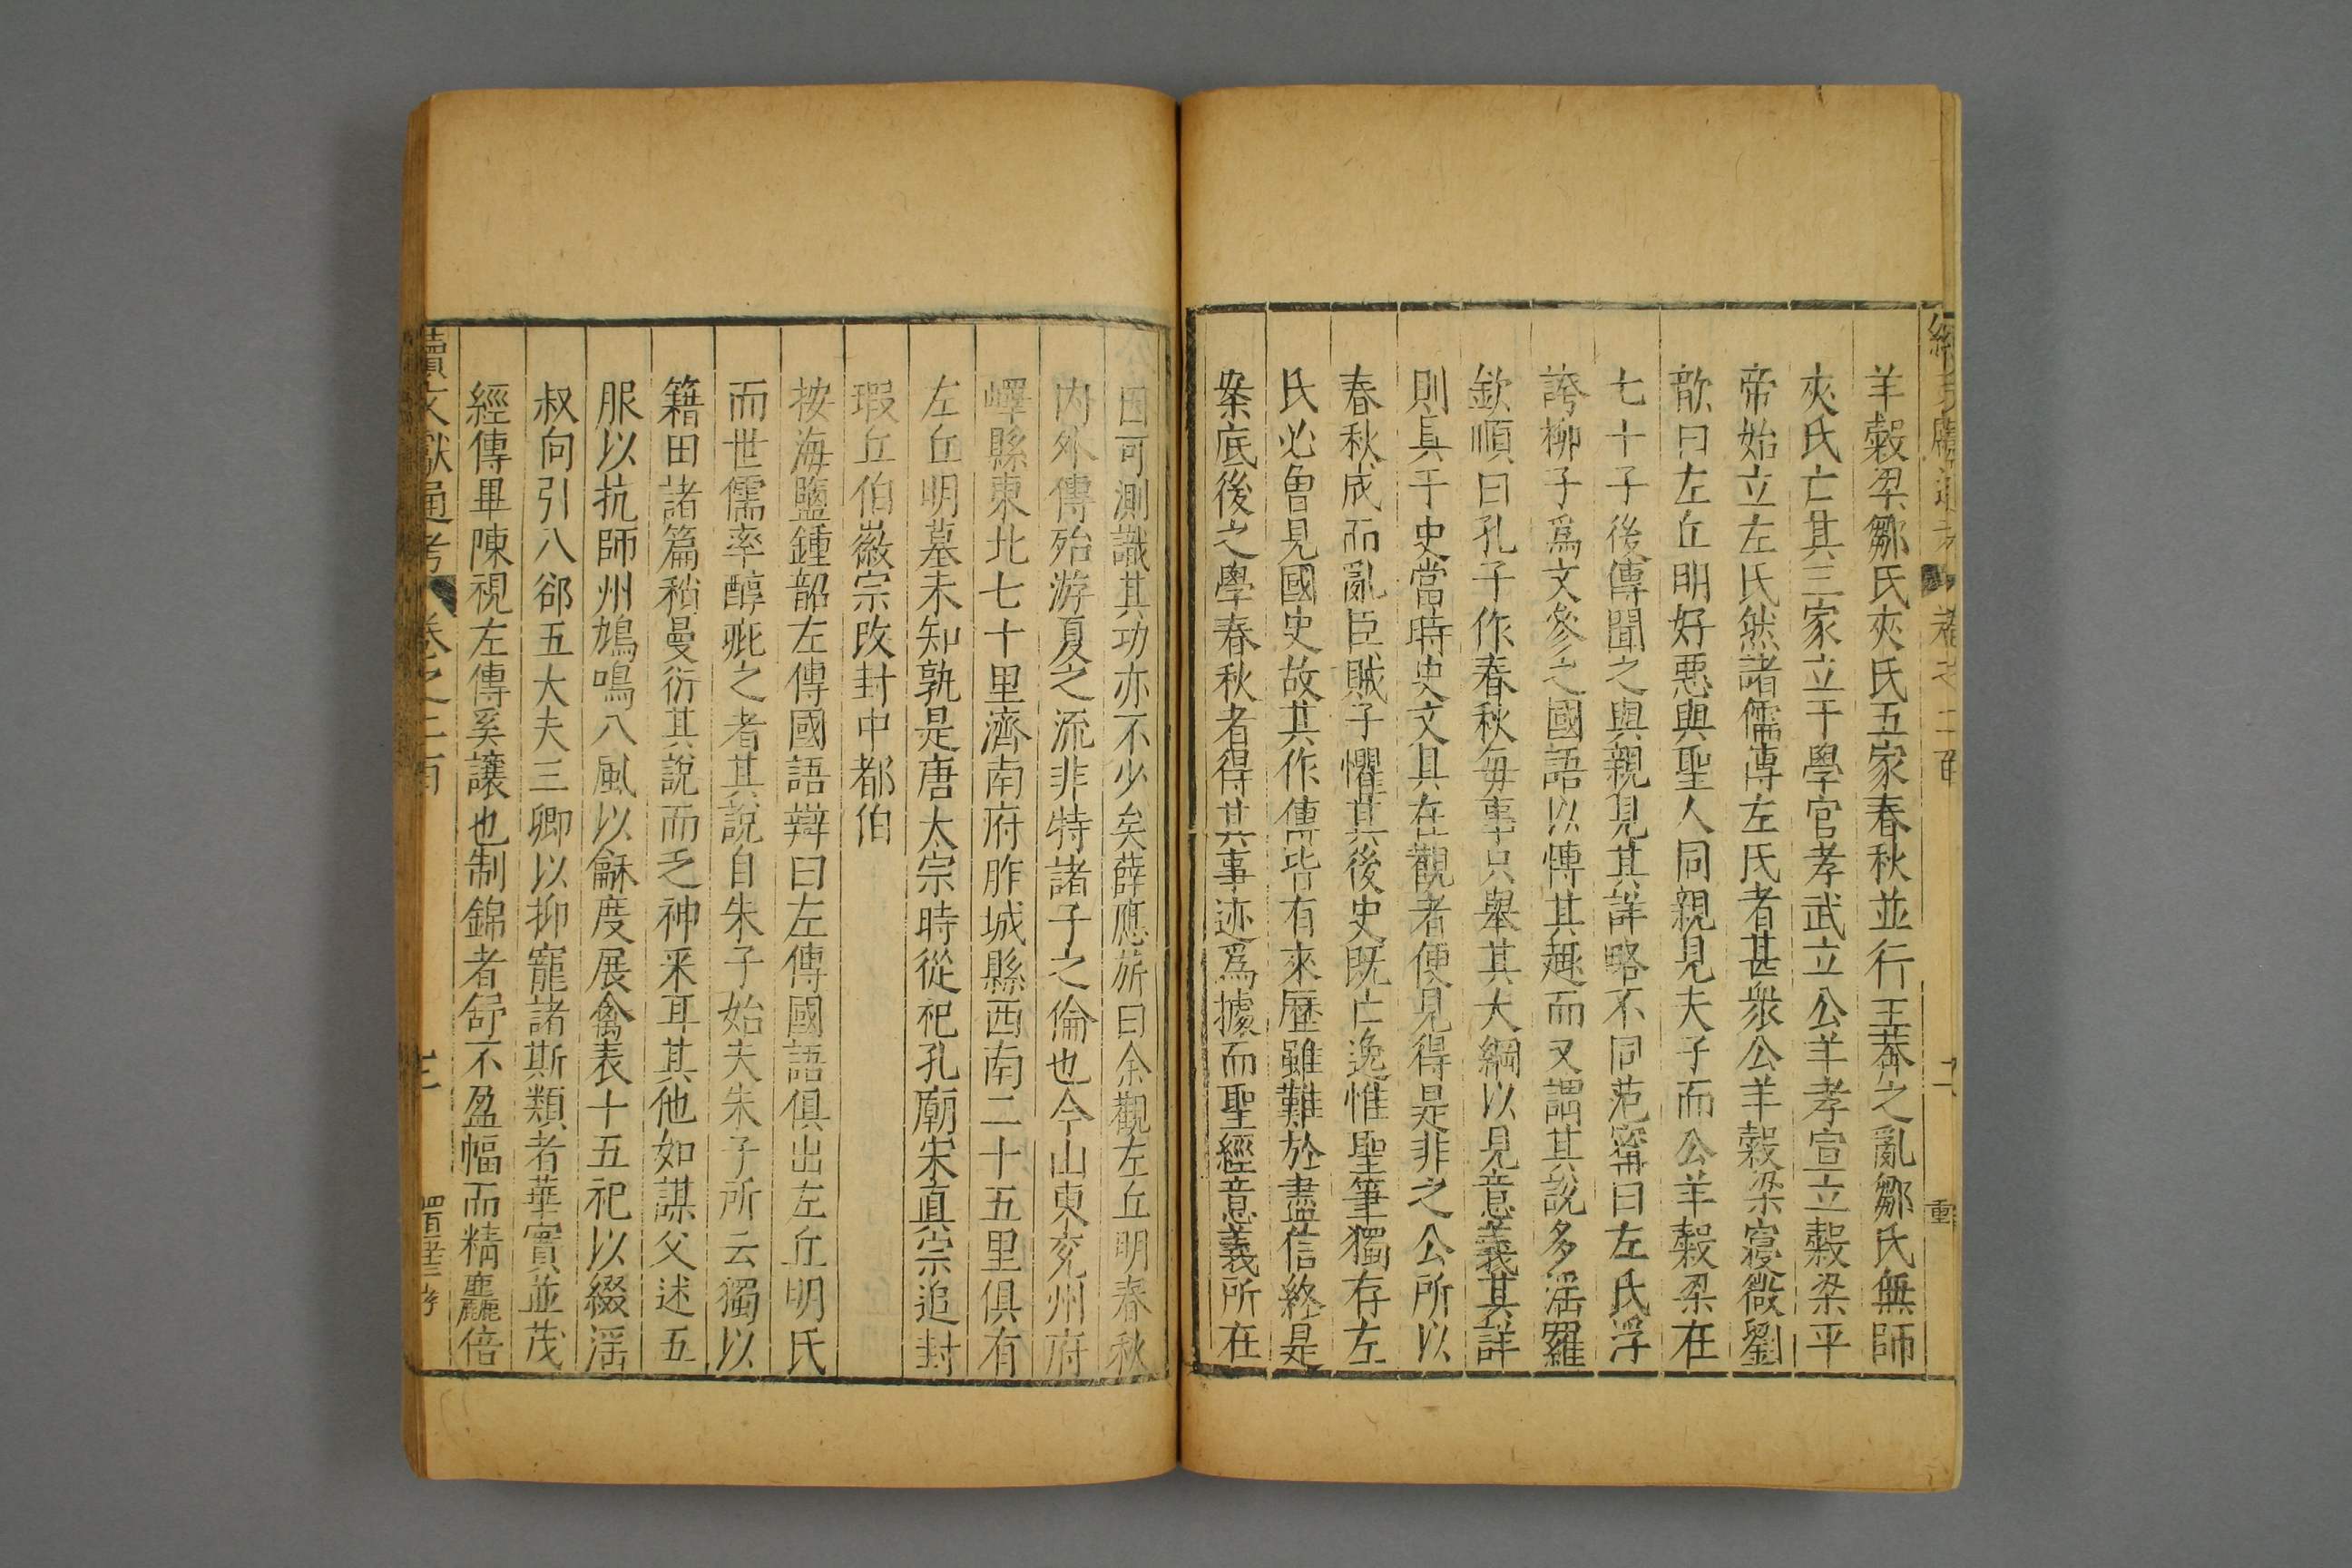 羊榖梁鄒氏夾氏五家春秋並行王莽之亂鄒氏無師
夾氏亡其三家立于學官孝武立公羊孝宣立榖梁平
帝始立左氏然諸儒傳左氏者甚衆公羊榖梁寖微劉
歆曰左丘明好惡與聖人同親見夫子而公羊榖梁在
七十子後傳聞之與親見其詳略不同范甯曰左氏浮
誇柳子爲文參之國語以慱其趣而又謂其說多淫羅
欽順曰孔子作春秋每事只舉其大綱以見意義其詳
則具于史當時史文具在觀者便見得是非之公所以
春秋成而亂臣賊子懼其後史既亡逸惟聖筆獨存左
氏必曾見國史故其作傳皆有來歷雖難於盡信終是
案底後之學春秋者得其事迹爲據而聖經意義所在
因可測識其功亦不少矣薛應旂曰余觀左丘明春秋
内外傳殆游夏之流非特諸子之倫也今山東兖州府
嶧縣東北七十里濟南府胙城縣西南二十五里俱有
左丘明墓未知孰是唐太宗時從祀孔廟宋真宗追封
瑕丘伯徽宗改封中都伯
按海鹽鍾韶左傳國語辯曰左傳國語俱出左丘明氏
而世儒率醇疵之者其說自朱子始夫朱子所云獨以
籍田諸篇稍曼衍其說而乏神采耳其他如謀父述五
服以抗師州鳩鳴八風以龢度展禽表十五祀以綴淫
叔向引八郤五大夫三卿以抑寵諸斯類者華實並茂
經傳畢陳視左傳奚讓也制錦者舒不盈幅而精麤倍
續文獻通考 卷之二百